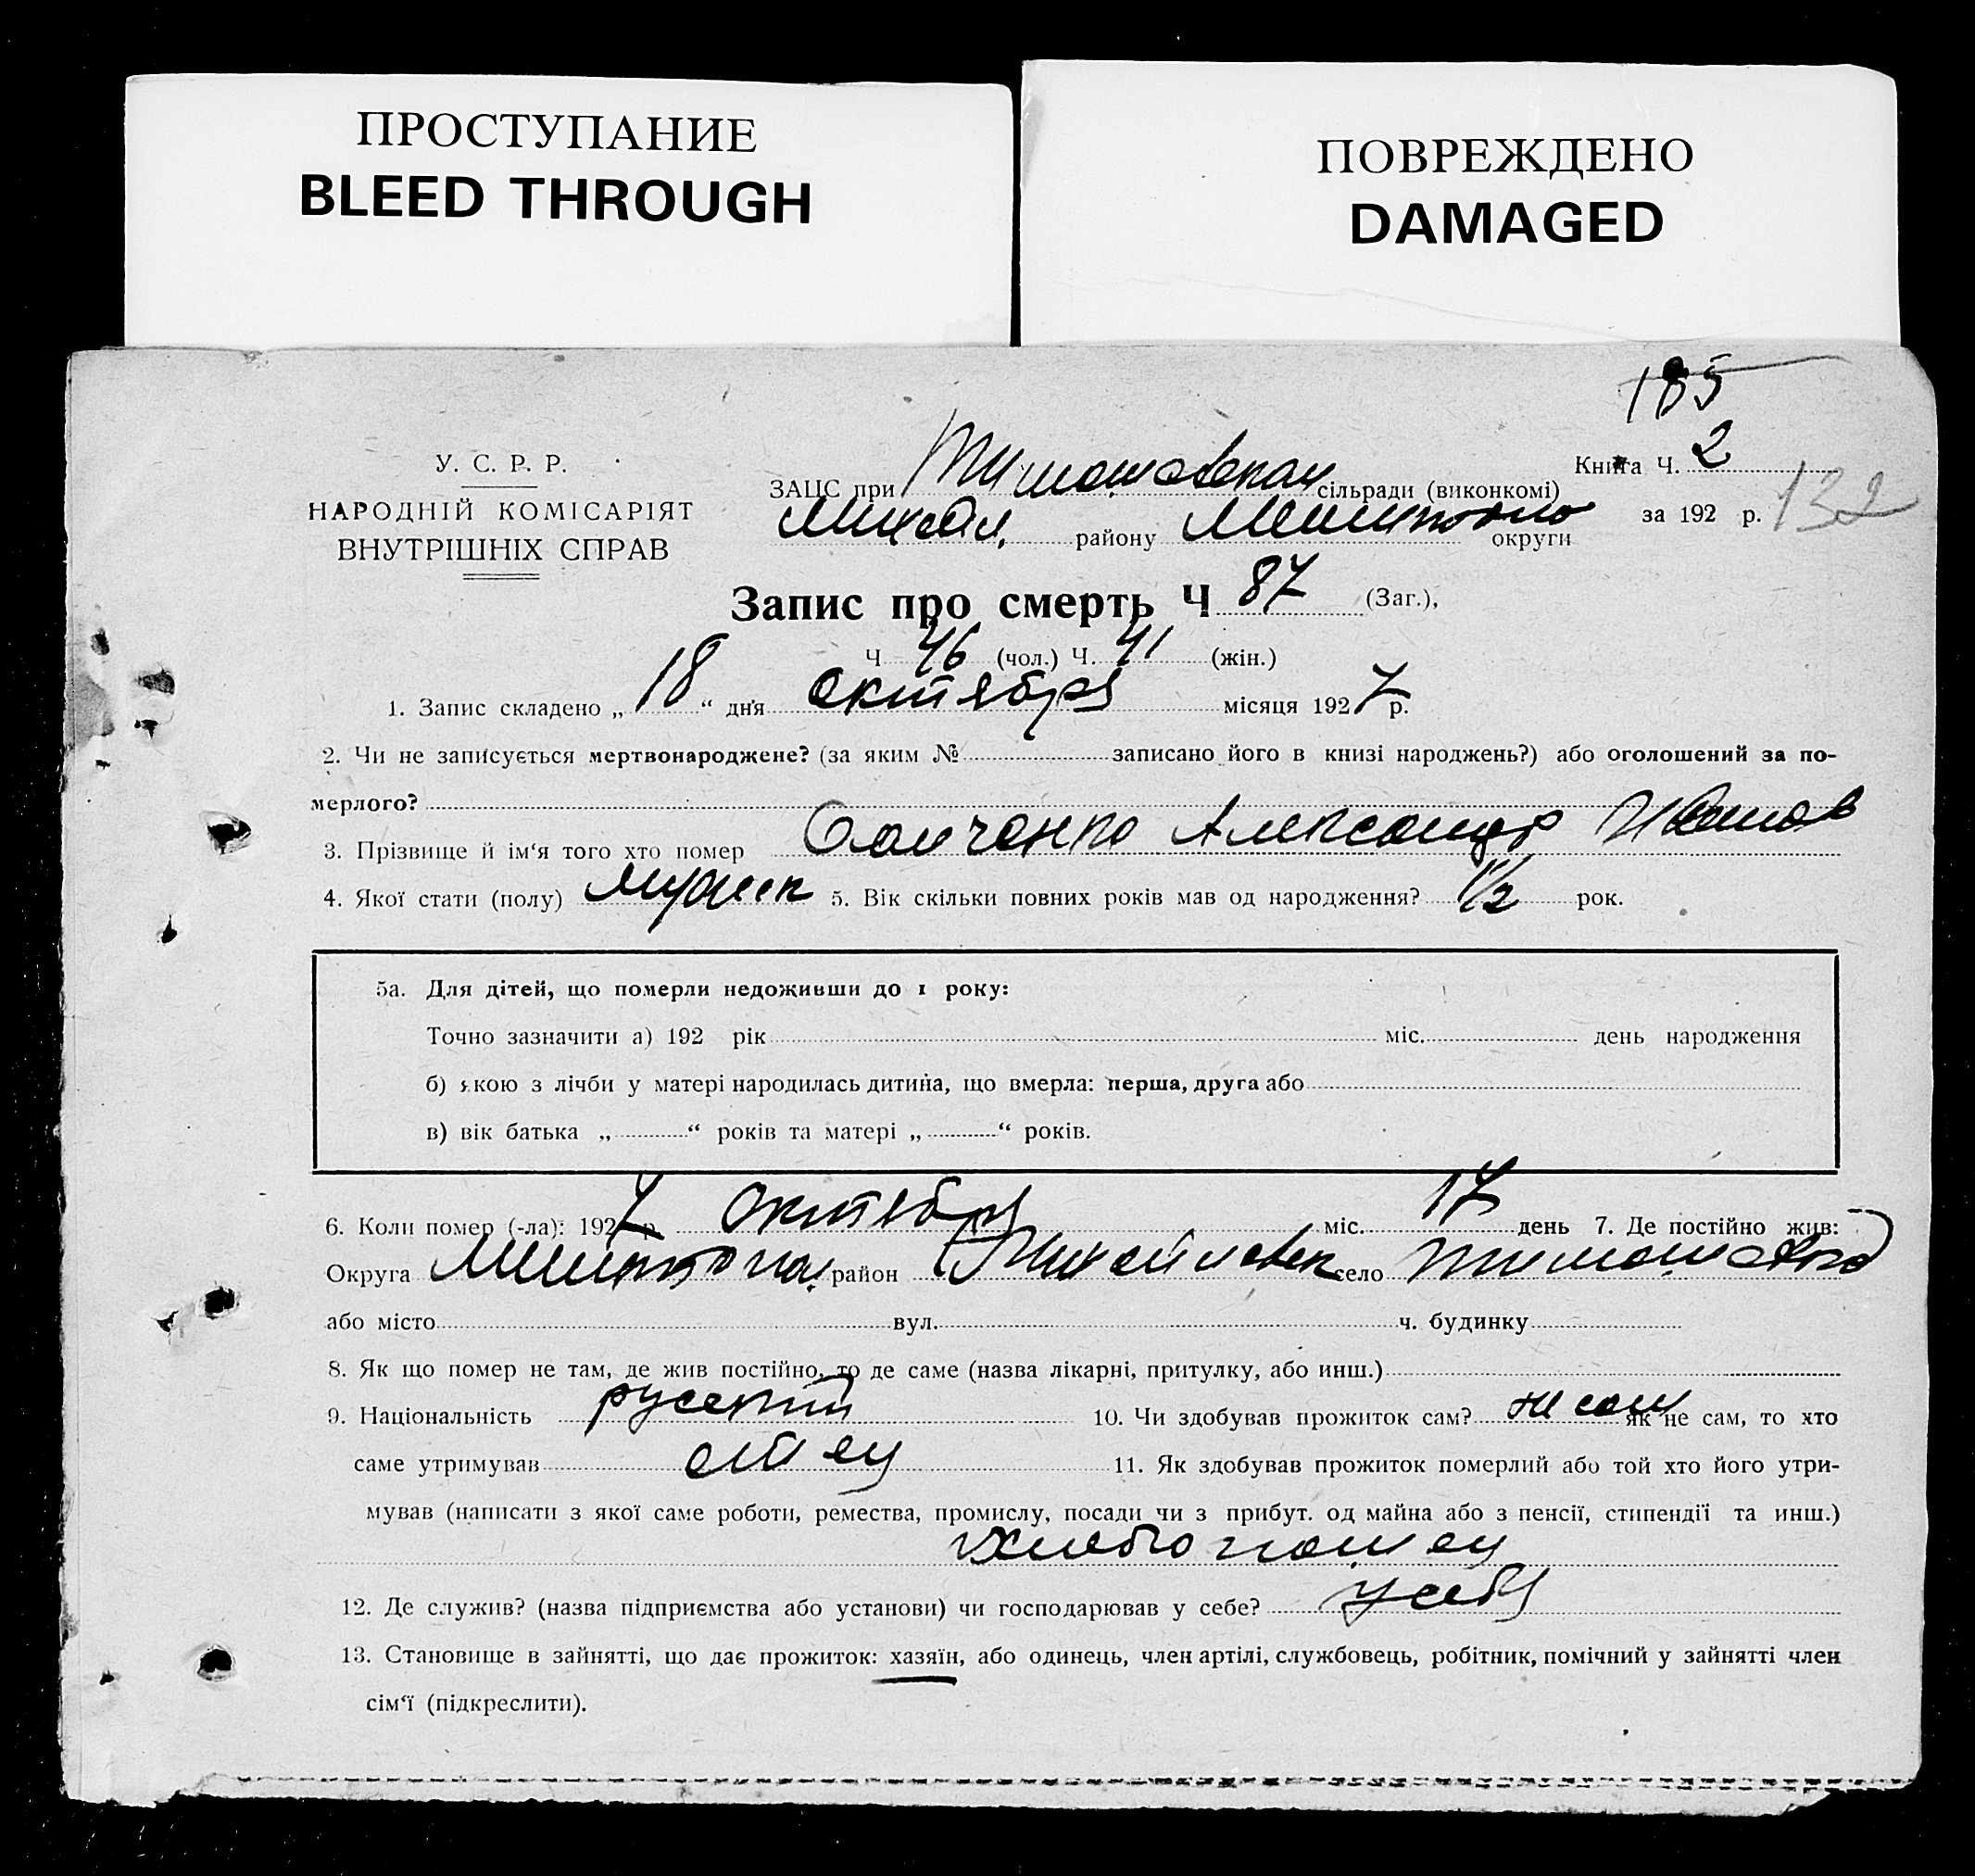 ПРОСТУПАНИЕ
BLEED THROUGH
ПОВРЕЖДЕНО
DAMAGED
185
У. С. Р. Р.
НАРОДНІЙ КОМІСАРІЯТ
ВНУТРІШНІХ СПРАВ
Книга Ч. 2
за 192 р. 132
ЗАЦС при Тимошовская сільради (виконкомі)
Михайл. району округи
Запис про смерть Ч 87 (Заг.),
Ч 46 (чол.) Ч. 41 (жін.)
1. Запис складено „ 18 “ дня октября місяця 1927 р.
2. Чи не записується мертвонароджене? (за яким № записано його в книзі народжень?) або оголошений за по-
мерлого?
3. Прізвище й ім‘я того хто помер Александр Иванов
4. Якої стати (полу) мужск 5. Вік скільки повних років мав од народження? 1/2 рок.
5а. Для дітей, що померли недоживши до 1 року:
Точно зазначити а) 192 рік міс. день народження
б) якою з лічби у матері народилась дитина, що вмерла: перша, друга або
в) вік батька „ “ років та матері „ “ років.
6. Коли помер (-ла): 1927 р. октября міс. 17 день 7. Де постійно жив:
Округа район Михайловск село Тимошовка
або місто вул. ч. будинку
8. Як що помер не там, де жив постійно, то де саме (назва лікарні, притулку, або инш.)
9. Національність русский 10. Чи здобував прожиток сам? не сам як не сам, то хто
саме утримував отец 11. Як здобував прожиток померлий або той хто його утри-
мував (написати з якої саме роботи, ремества, промислу, посади чи з прибут. од майна або з пенсії, стипендії та инш.)
хлебопашец
12. Де служив? (назва підприємства або установи) чи господарював у себе? у себя
13. Становище в зайнятті, що дає прожиток: хазяїн, або одинець, член артілі, службовець, робітник, помічний у зайнятті член
сім‘ї (підкреслити).